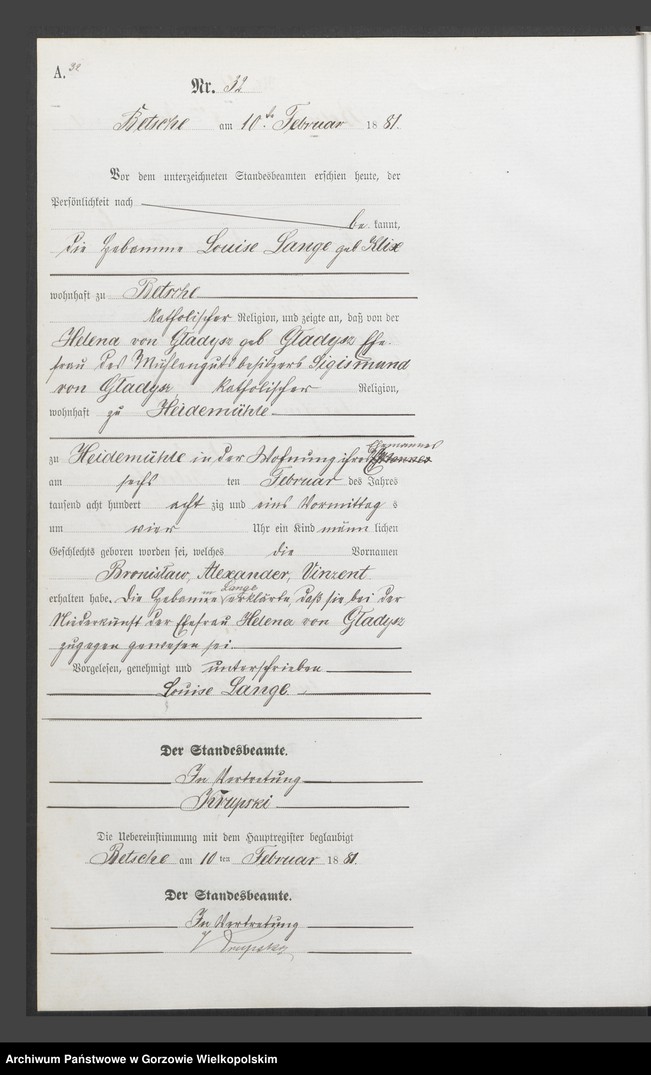 A. 32
Nr. 32
Betsche am 10ten Februar 1881.
Vor dem unterzeichneten Standesbeamten erschien heute, der
Persönlichkeit nach
be kannt,
die Hebamme Louise Lange geb Klix
wohnhaft zu Betsche
katholischer Religion, und zeigte an, daß von der
Helena von Gladysz geb Gladysz Ehe-
frau des Mühlengutsbesitzers Sigismund
von Gladysz katholischer Religion,
wohnhaft zu Heidemühle
Ehemannes
zu Heidemühle in der Wohnung ihres
am sechs ten Februar des Jahres
tausend acht hundert acht zig und eins Vormittag s
um vier Uhr ein Kind männ lichen
Geschlechts geboren worden sei, welches die Vornamen
Bronislaw, Alexander, Vinzent
Lange
erhalten habe. Die Hebamme erklärte, daß sie bei der
Niederkunft der Ehefrau Helena von Gladysz
zugegen gewesen sei
Vorgelesen, genehmigt und unterschrieben
Louise Lange.
Der Standesbeamte.
In Vertretung
Krupski
Die Uebereinstimmung mit dem Hauptregister beglaubigt
Betsche am 10 ten Februar 1881.
Der Standesbeamte.
In Vertretung
Archiwum Państwowe w Gorzowie Wielkopolskim